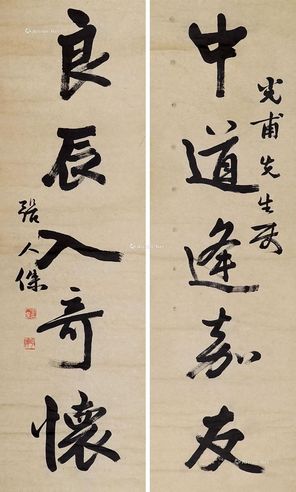 中道逢嘉友
光甫先生屬
良辰入奇懷
張人傑